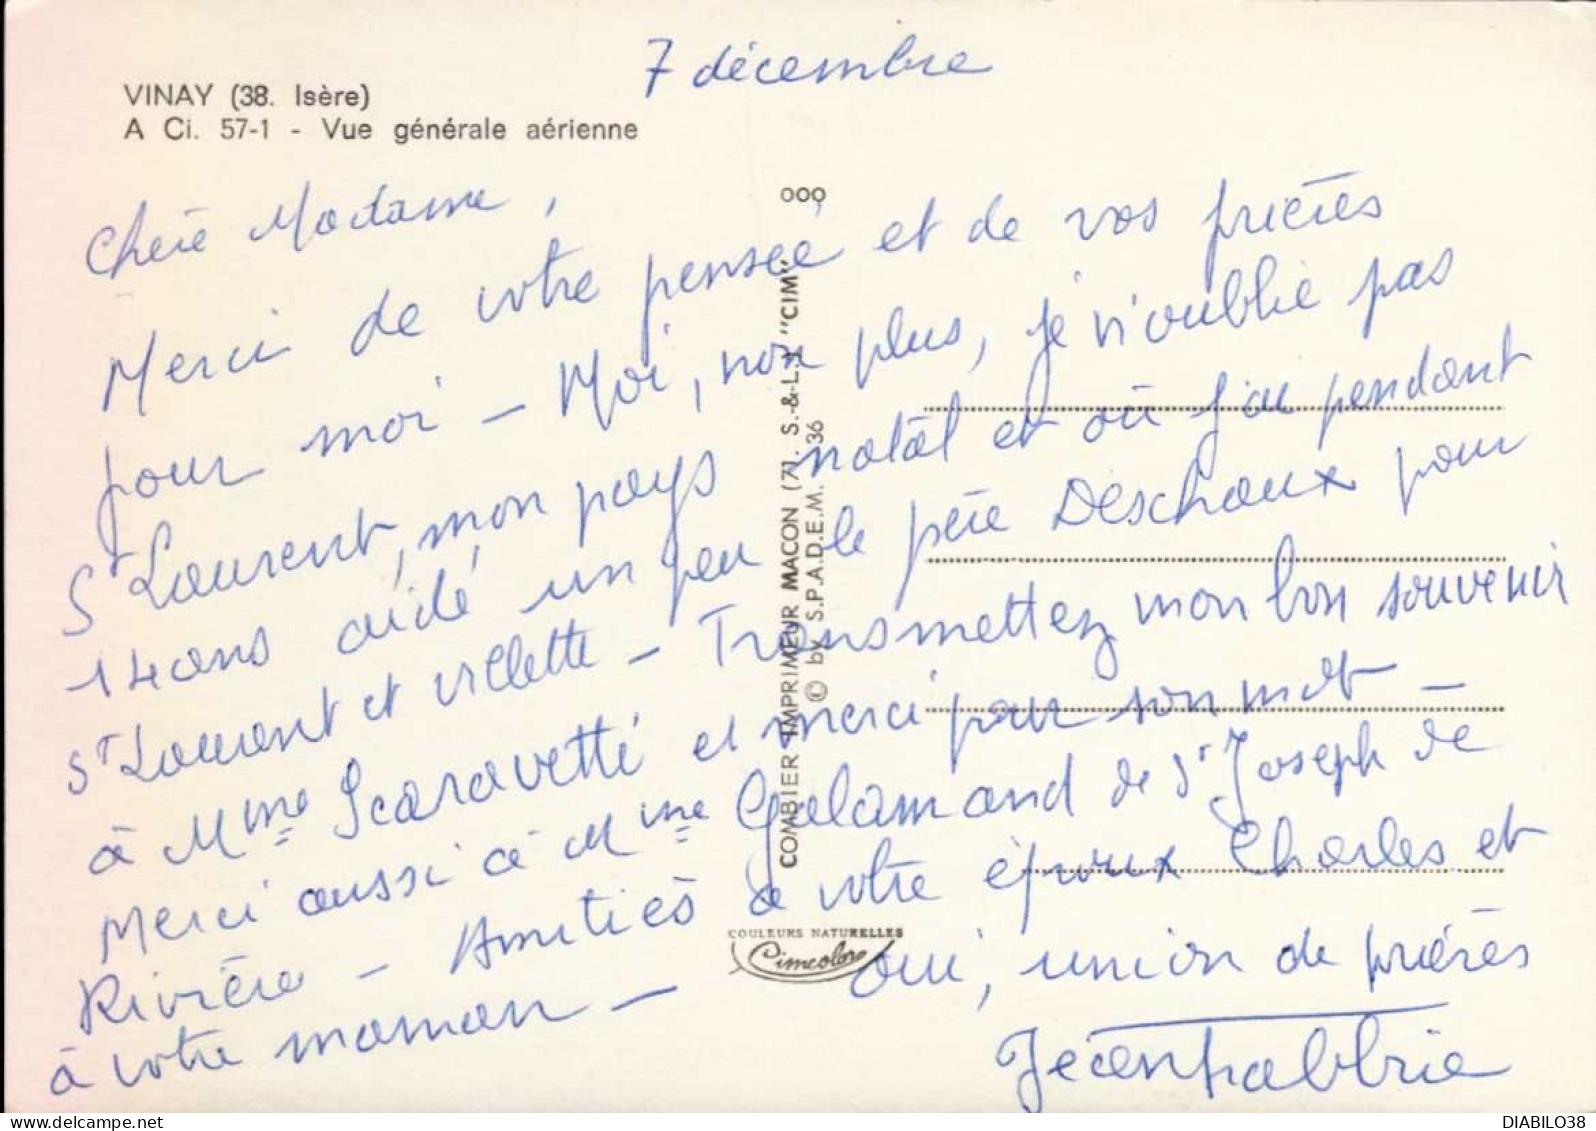 7 décembre
VINAY (38. Isère)
A Ci. 57-1 - Vue générale aérienne
Chère Madame,
Merci de votre pensée et de vos prières
pour moi - Moi, non plus, je n'oublie pas
St Laurent, mon pays natal et où j'ai pendant
14 ans aidé un peu le père Deschaux pour
St Laurent et Villette - Transmettez mon bon souvenir
à Mme Scaravetti et merci pour son mot -
Merci aussi à Mme Galamand de St Joseph de
Rivière - Amitiés à votre époux Charles et
à votre maman - oui, union de prières
000
COMBIER IMPRIMEUR MACON (71. S.-&-L.) "CIM"
© by S.P.A.D.E.M. 36
COULEURS NATURELLES
Cimcolor
DIABILO38